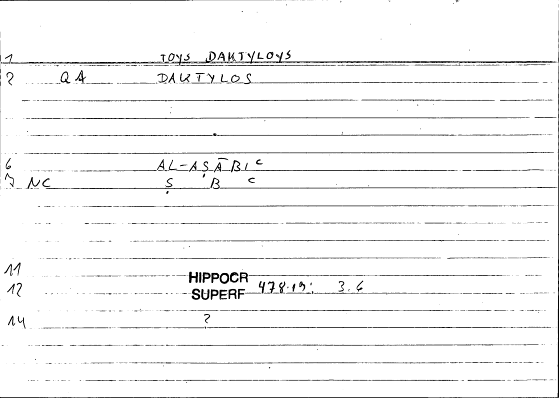 1 TOYS DAKTYLOYS
2 QA DAKTYLOS
6 AL-AṢĀBIʿ
7 NC Ṣ B ʿ
11
12 HIPPOCR SUPERF 478.19: 3.6
14 ?